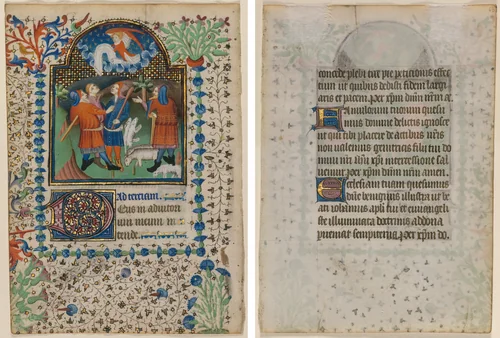 Ad terciam.
Deus in adiutori
um meum in
tende.
concede plebi tue pie peticionis effec
tum ut quibus dedisti fidem largi
aris et pacem. per xpm dnm nrm a.
Famulorum tuorum quesu
mus domine delictis ignosce
ut qui tibi placere de actibus nris
non ualemus genitricis filii tui do
mini nri ihu xpi intercessione sal
uemur. per xpm dnm nrm amen.
Ecclesiam tuam quesumus
dne benignus illustra ut be
ati iohannis apli tui et euuangeli
ste illuminata doctrinis ad dona
perueniat sempiterna. per xpm do.